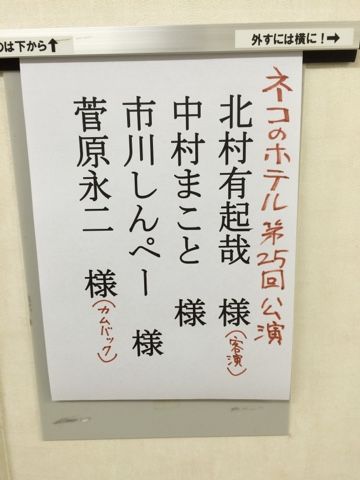 のは下から↑
外すには横に!→
ネコのホテル第25回公演
北村有起哉 様
(客演)
中村まこと 様
市川しんぺー 様
菅原永二 様
(カムバック)